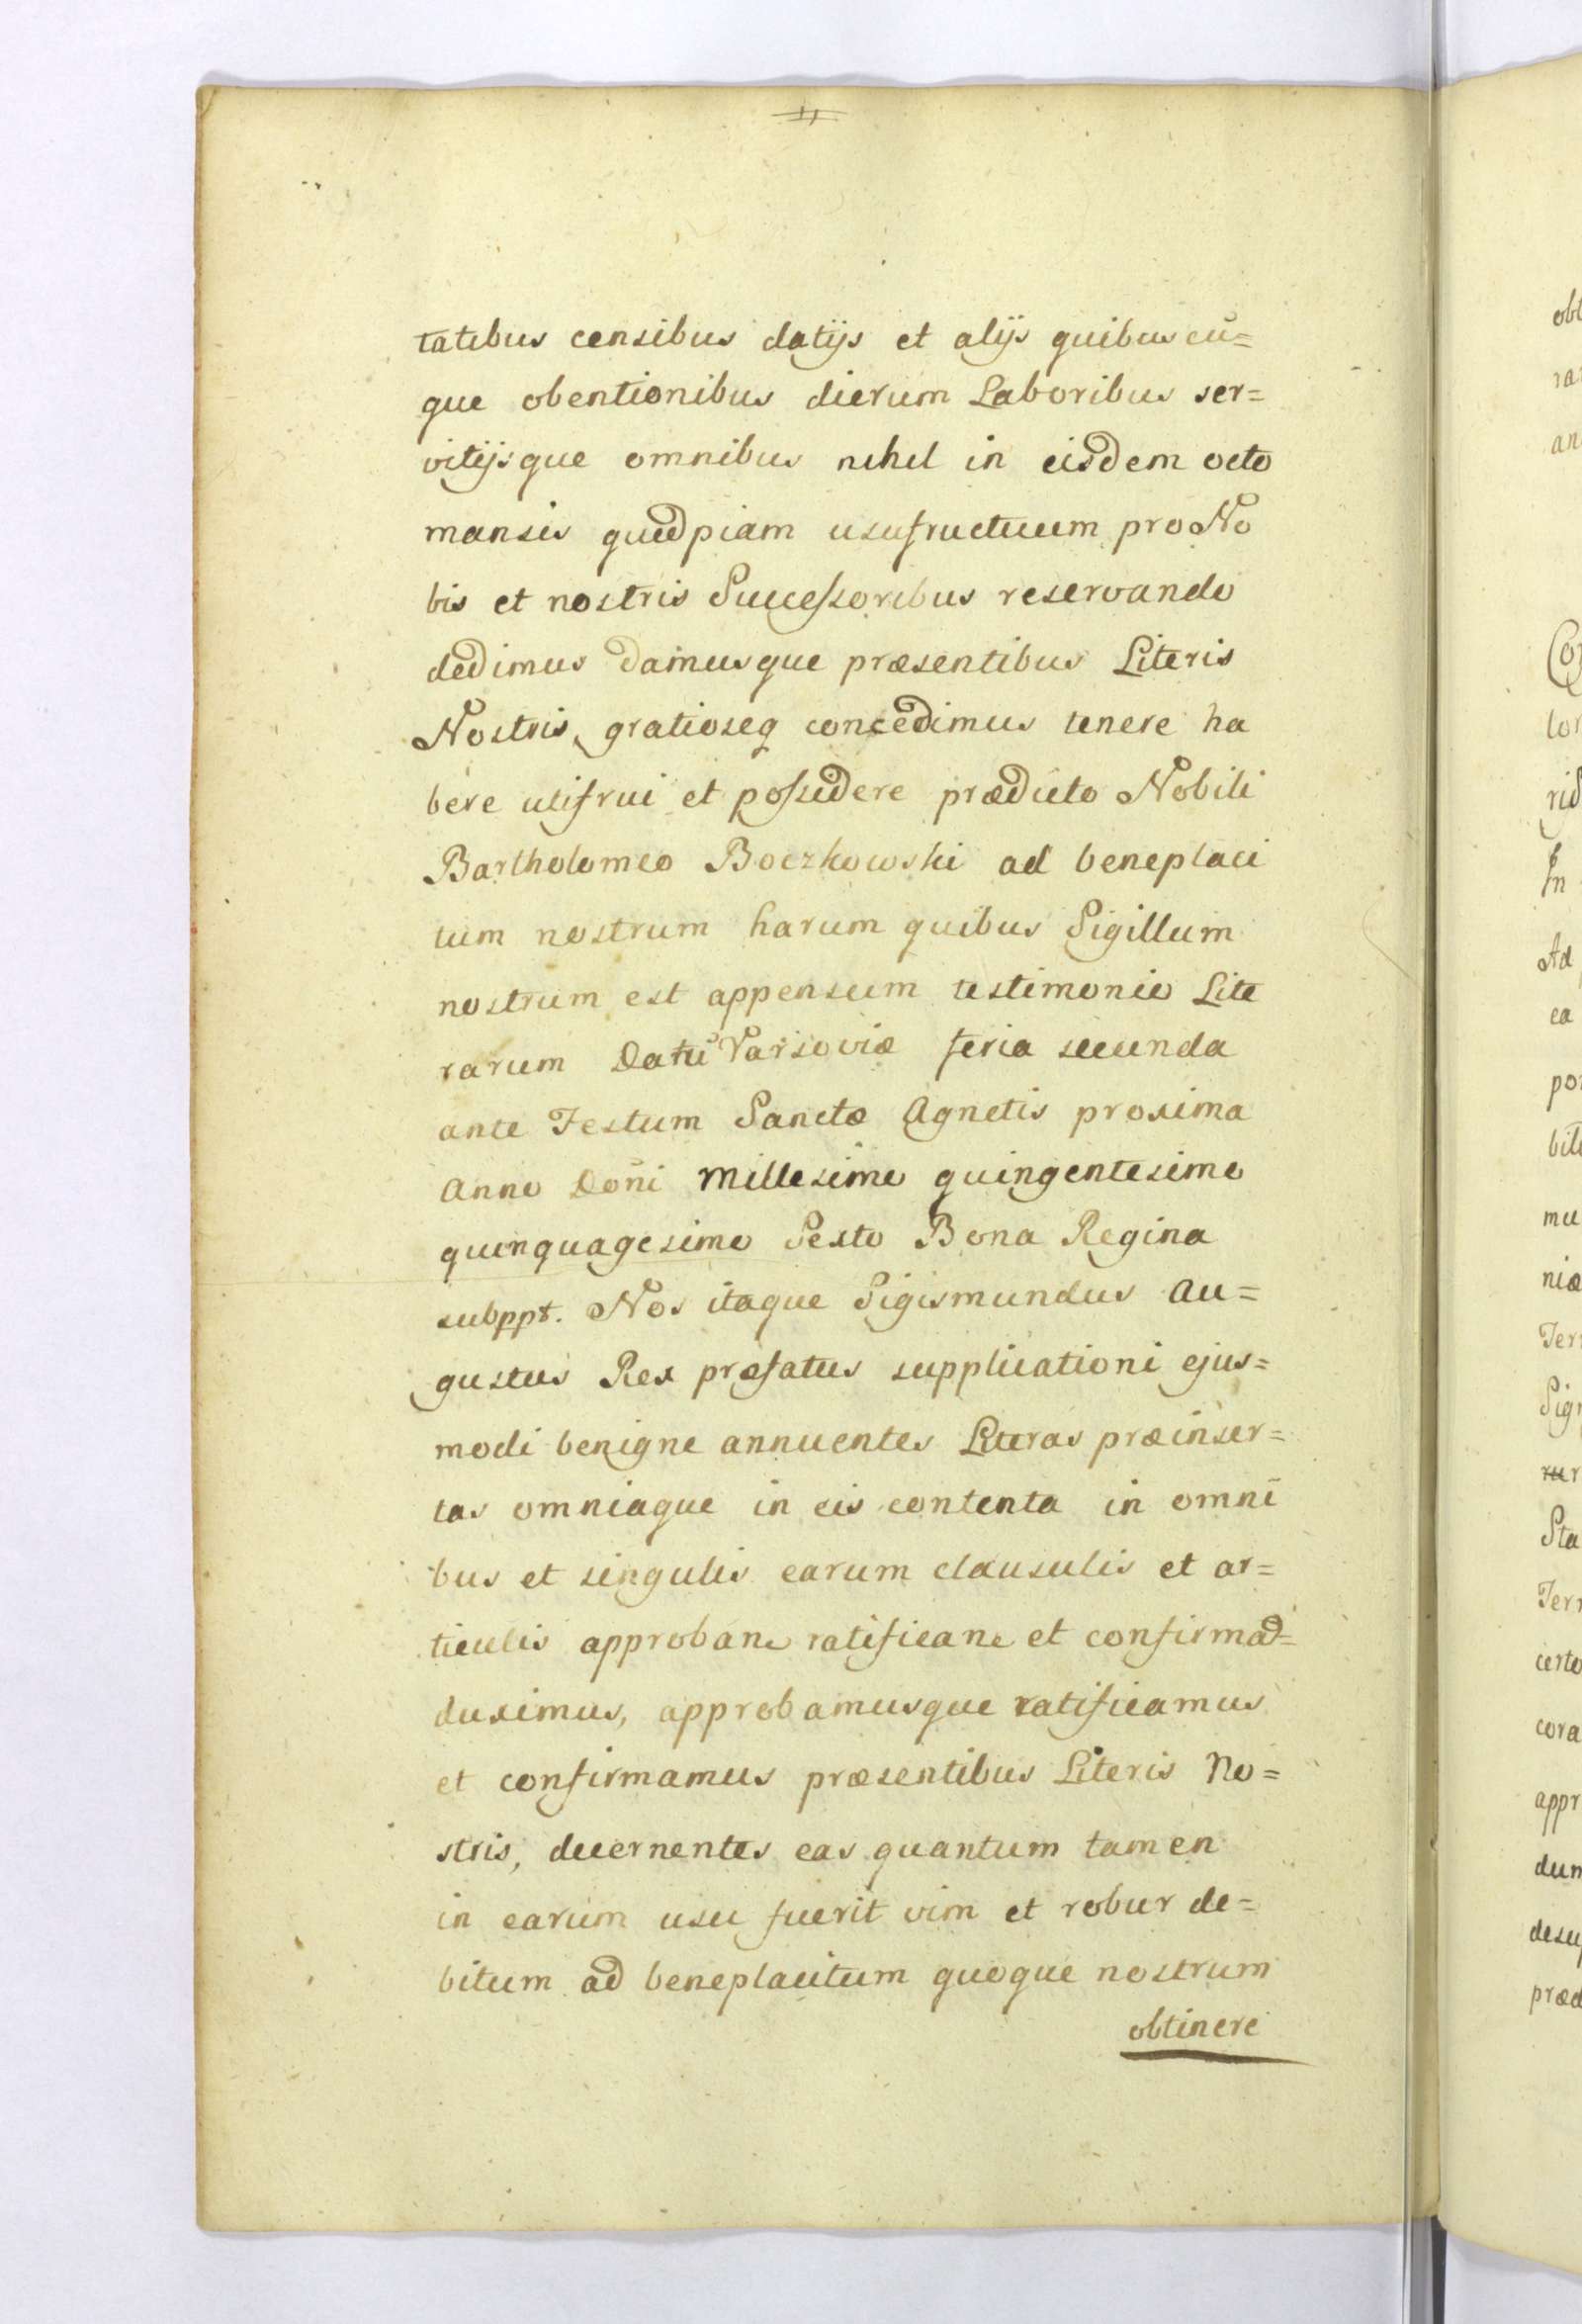 tatibus censibus datijs et alijs quibuscū=
que obentionibus dierum Laboribus ser=
vitijsque omnibus nihil in eisdem octo
mansis quidpiam usufructuum pro No
bis et nostris Successoribus reservando
dedimus damusque præsentibus Literis
Nostris, gratioseq concedimus tenere ha
bere utifrui et possidere prædicto Nobili
Bartholomeo Boczkowski ad beneplaci
tum nostrum harum quibus Sigillum
nostrum est appensum testimonio Lite
rarum Datū Varsoviæ feria secunda
ante Festum Sanctæ Agnetis proxima
Anno Doni Millesimo quingentesimo
quinquagesimo Sexto Bona Regina
subppt. Nos itaque Sigismundus Au=
gustus Rex præfatus supplicationi ejus=
modi benigne annuentes Literas præinser=
tas omniaque in eis contenta in omnī
bus et singulis earum clausulis et ar=
ticulis approban ratifican et confirmad=
duximus, approbamusque ratificamus
et confirmamus præsentibus Literis No=
stris, decernentes eas quantum tamen
in earum usu fuerit vim et robur de=
bitum ad beneplacitum quoque nostrum
obtinere